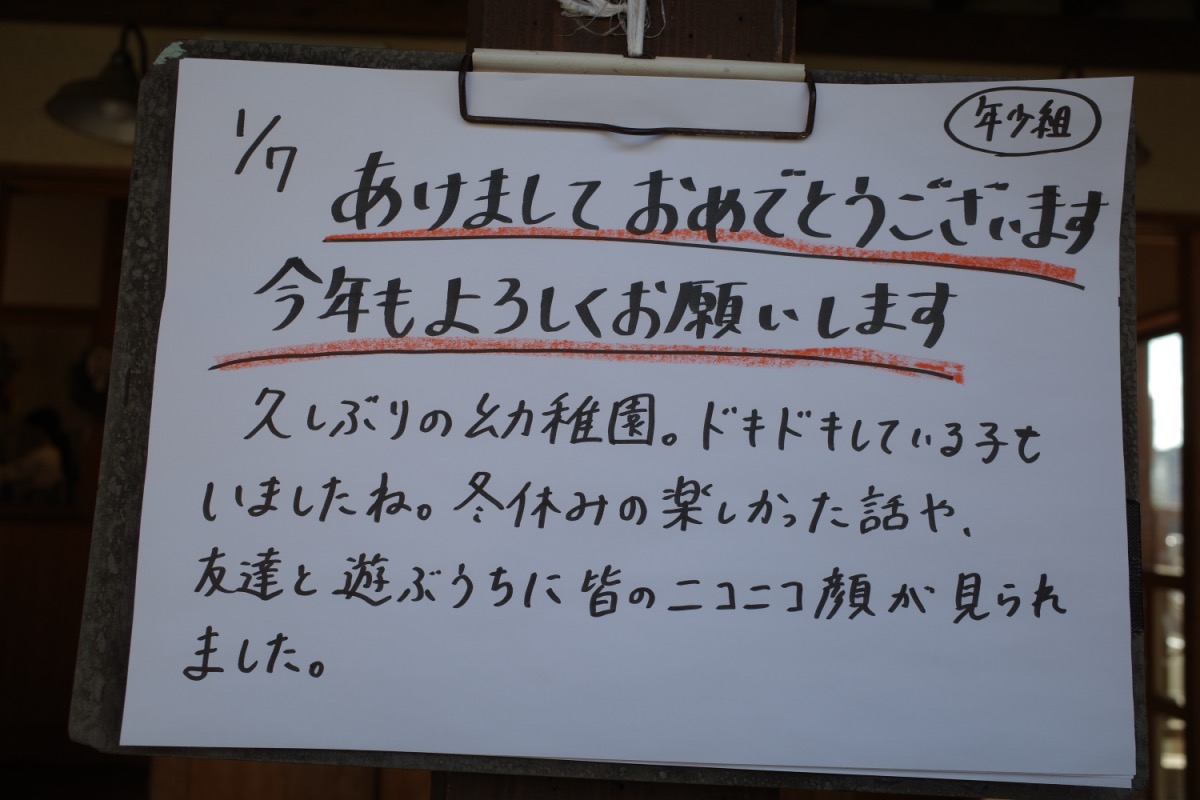 年少組
1/7
あけましておめでとうございます
今年もよろしくお願いします
久しぶりの幼稚園。ドキドキしている子も
いましたね。冬休みの楽しかった話や、
友達と遊ぶうちに皆のニコニコ顔が見られ
ました。